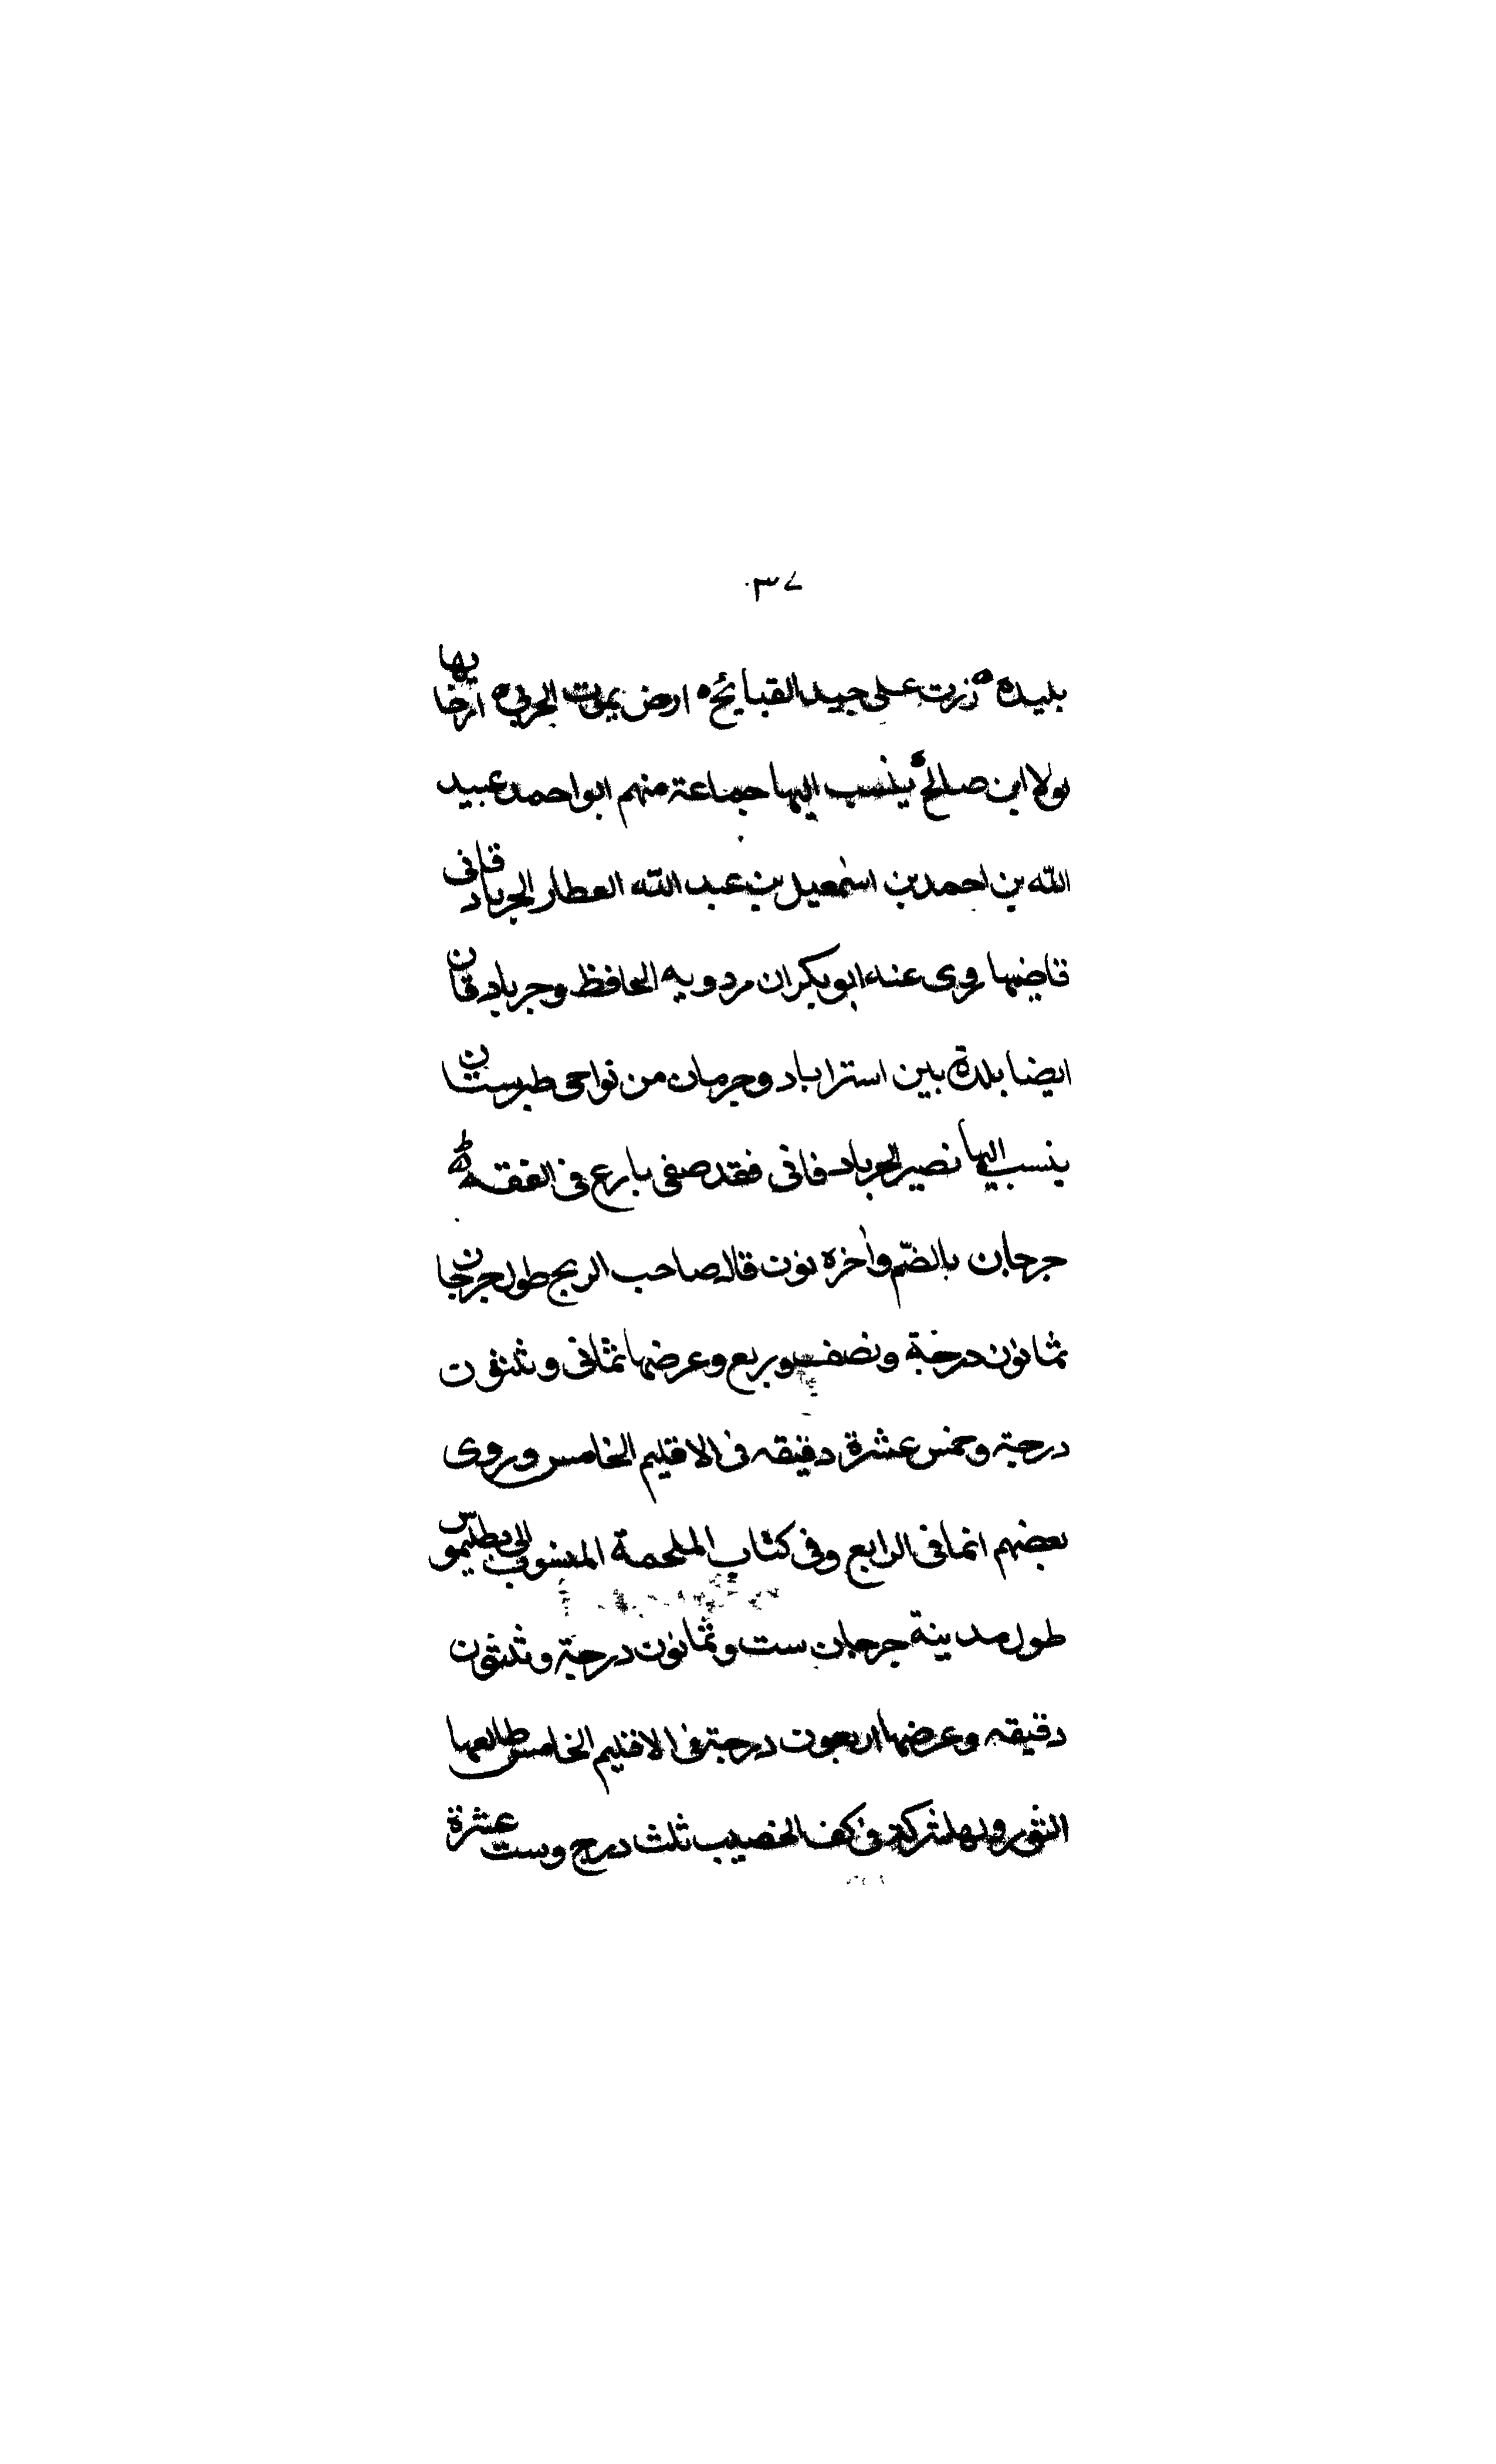 ٣٧
بليدة زرت على جيد القبايح ارض يموت الحر في ارجايها
لولا ابن صالح ينسب اليها جماعة منهم ابو احمد عبيد
الله بن احمد بن اسمعيل بن عبد الله العطار الجرباد قانى
قاضيها روى عنه ابو بكر ان مردويه الحافظ وجرباد قان
ايضا بلدة بين استراباد وجرجان من نواحى طبرستان
ينسب اليها نصير الجرباد قانى فقد صفى بارع فى الفقه
جرجان بالضم واخره نون قال صاحب الزيج طول جرجان
ثمانون درجة ونصف وربع وعرضها ثمانى وثلثون
درجة وخمس عشرة دقيقه فى الاقليم الخامس وروى
بعضهم انها فى الرابع وفى كتاب الملحمة المنسوب الى بطليموس
طول مدينة جرجان ست وثمانون درجة وثلثون
دقيقه وعرضها اربعون درجة فى الاقليم الخامس طالعها
الثور ولها شركة فى كف الخضيب ثلث درج وست عشرة